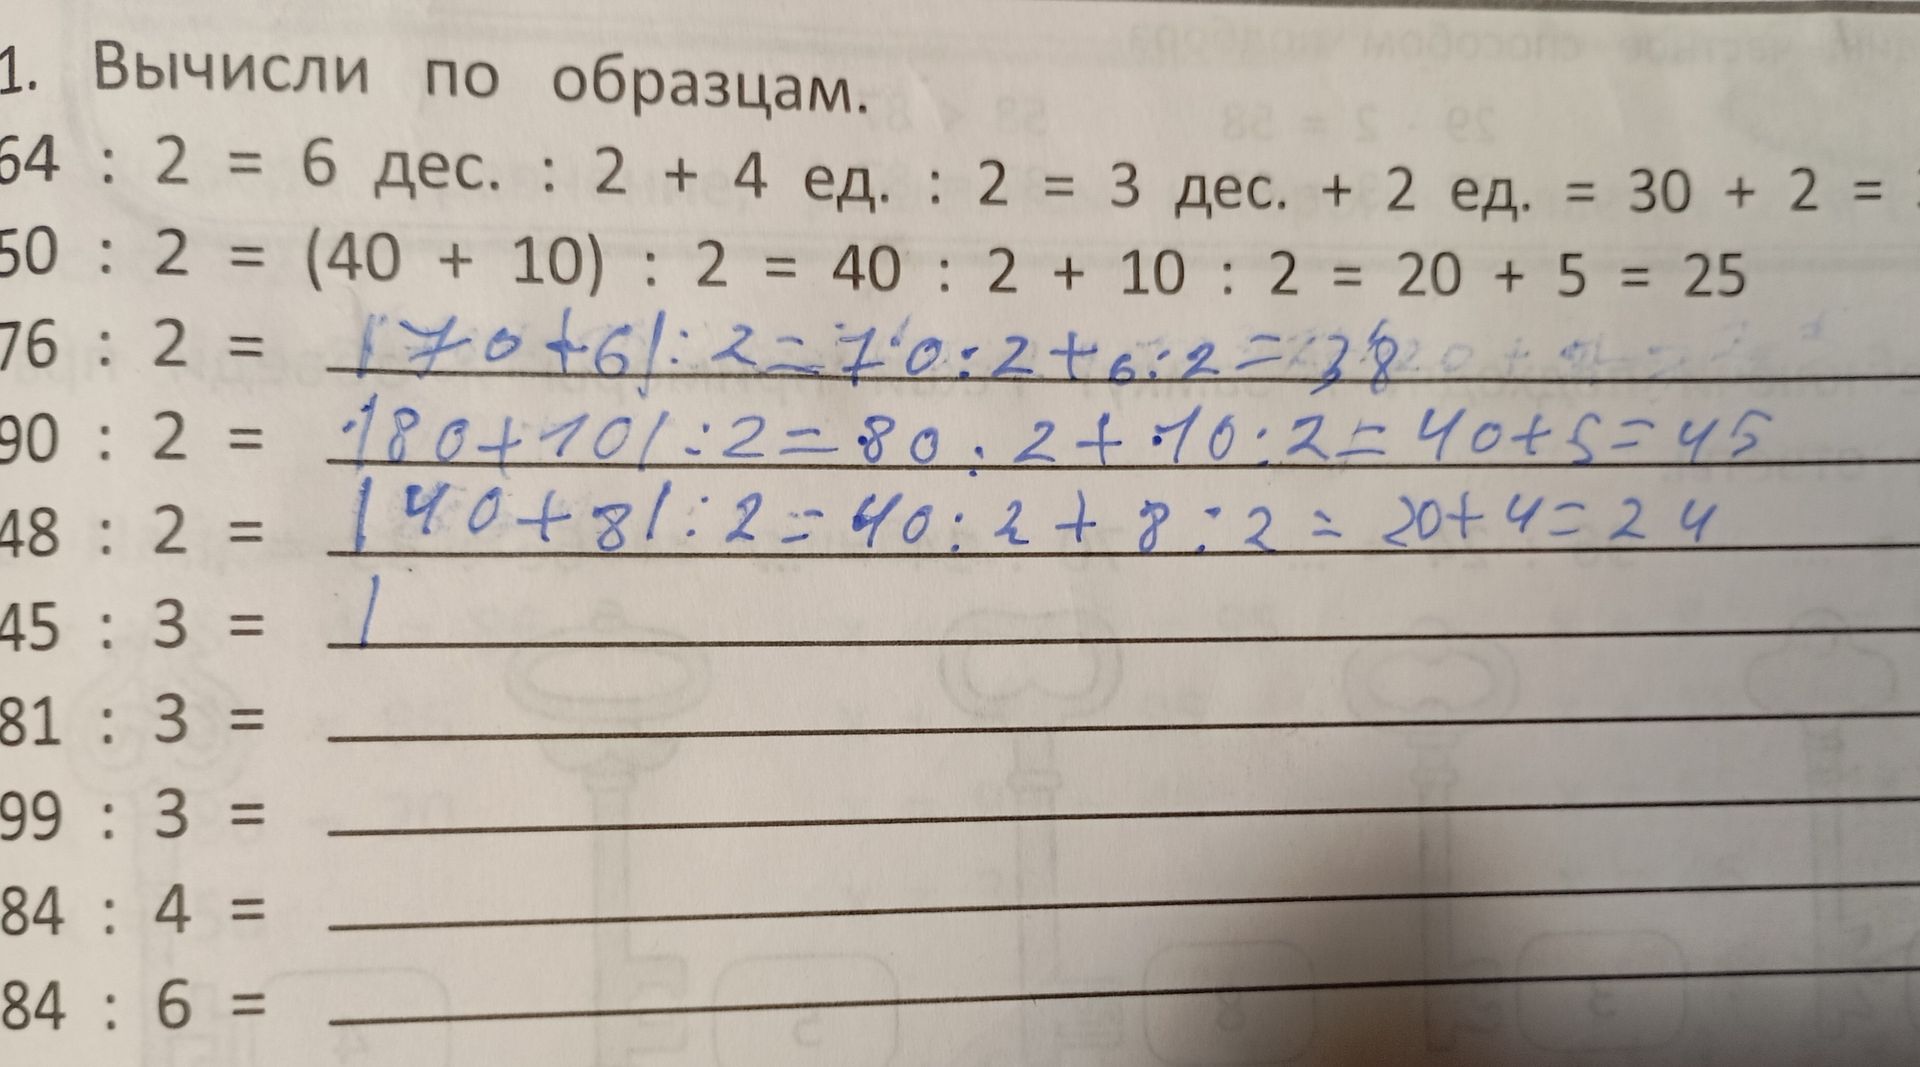 1. Вычисли по образцам.
64 : 2 = 6 дес. : 2 + 4 ед. : 2 = 3 дес. + 2 ед. = 30 + 2 =
50 : 2 = (40 + 10) : 2 = 40 : 2 + 10 : 2 = 20 + 5 = 25
76 : 2 = (70+6):2=70:2+6:2=38
90 : 2 = (80+10):2=80:2+10:2=40+5=45
48 : 2 = (40+8):2=40:2+8:2=20+4=24
45 : 3 = (
81 : 3 =
99 : 3 =
84 : 4 =
84 : 6 =